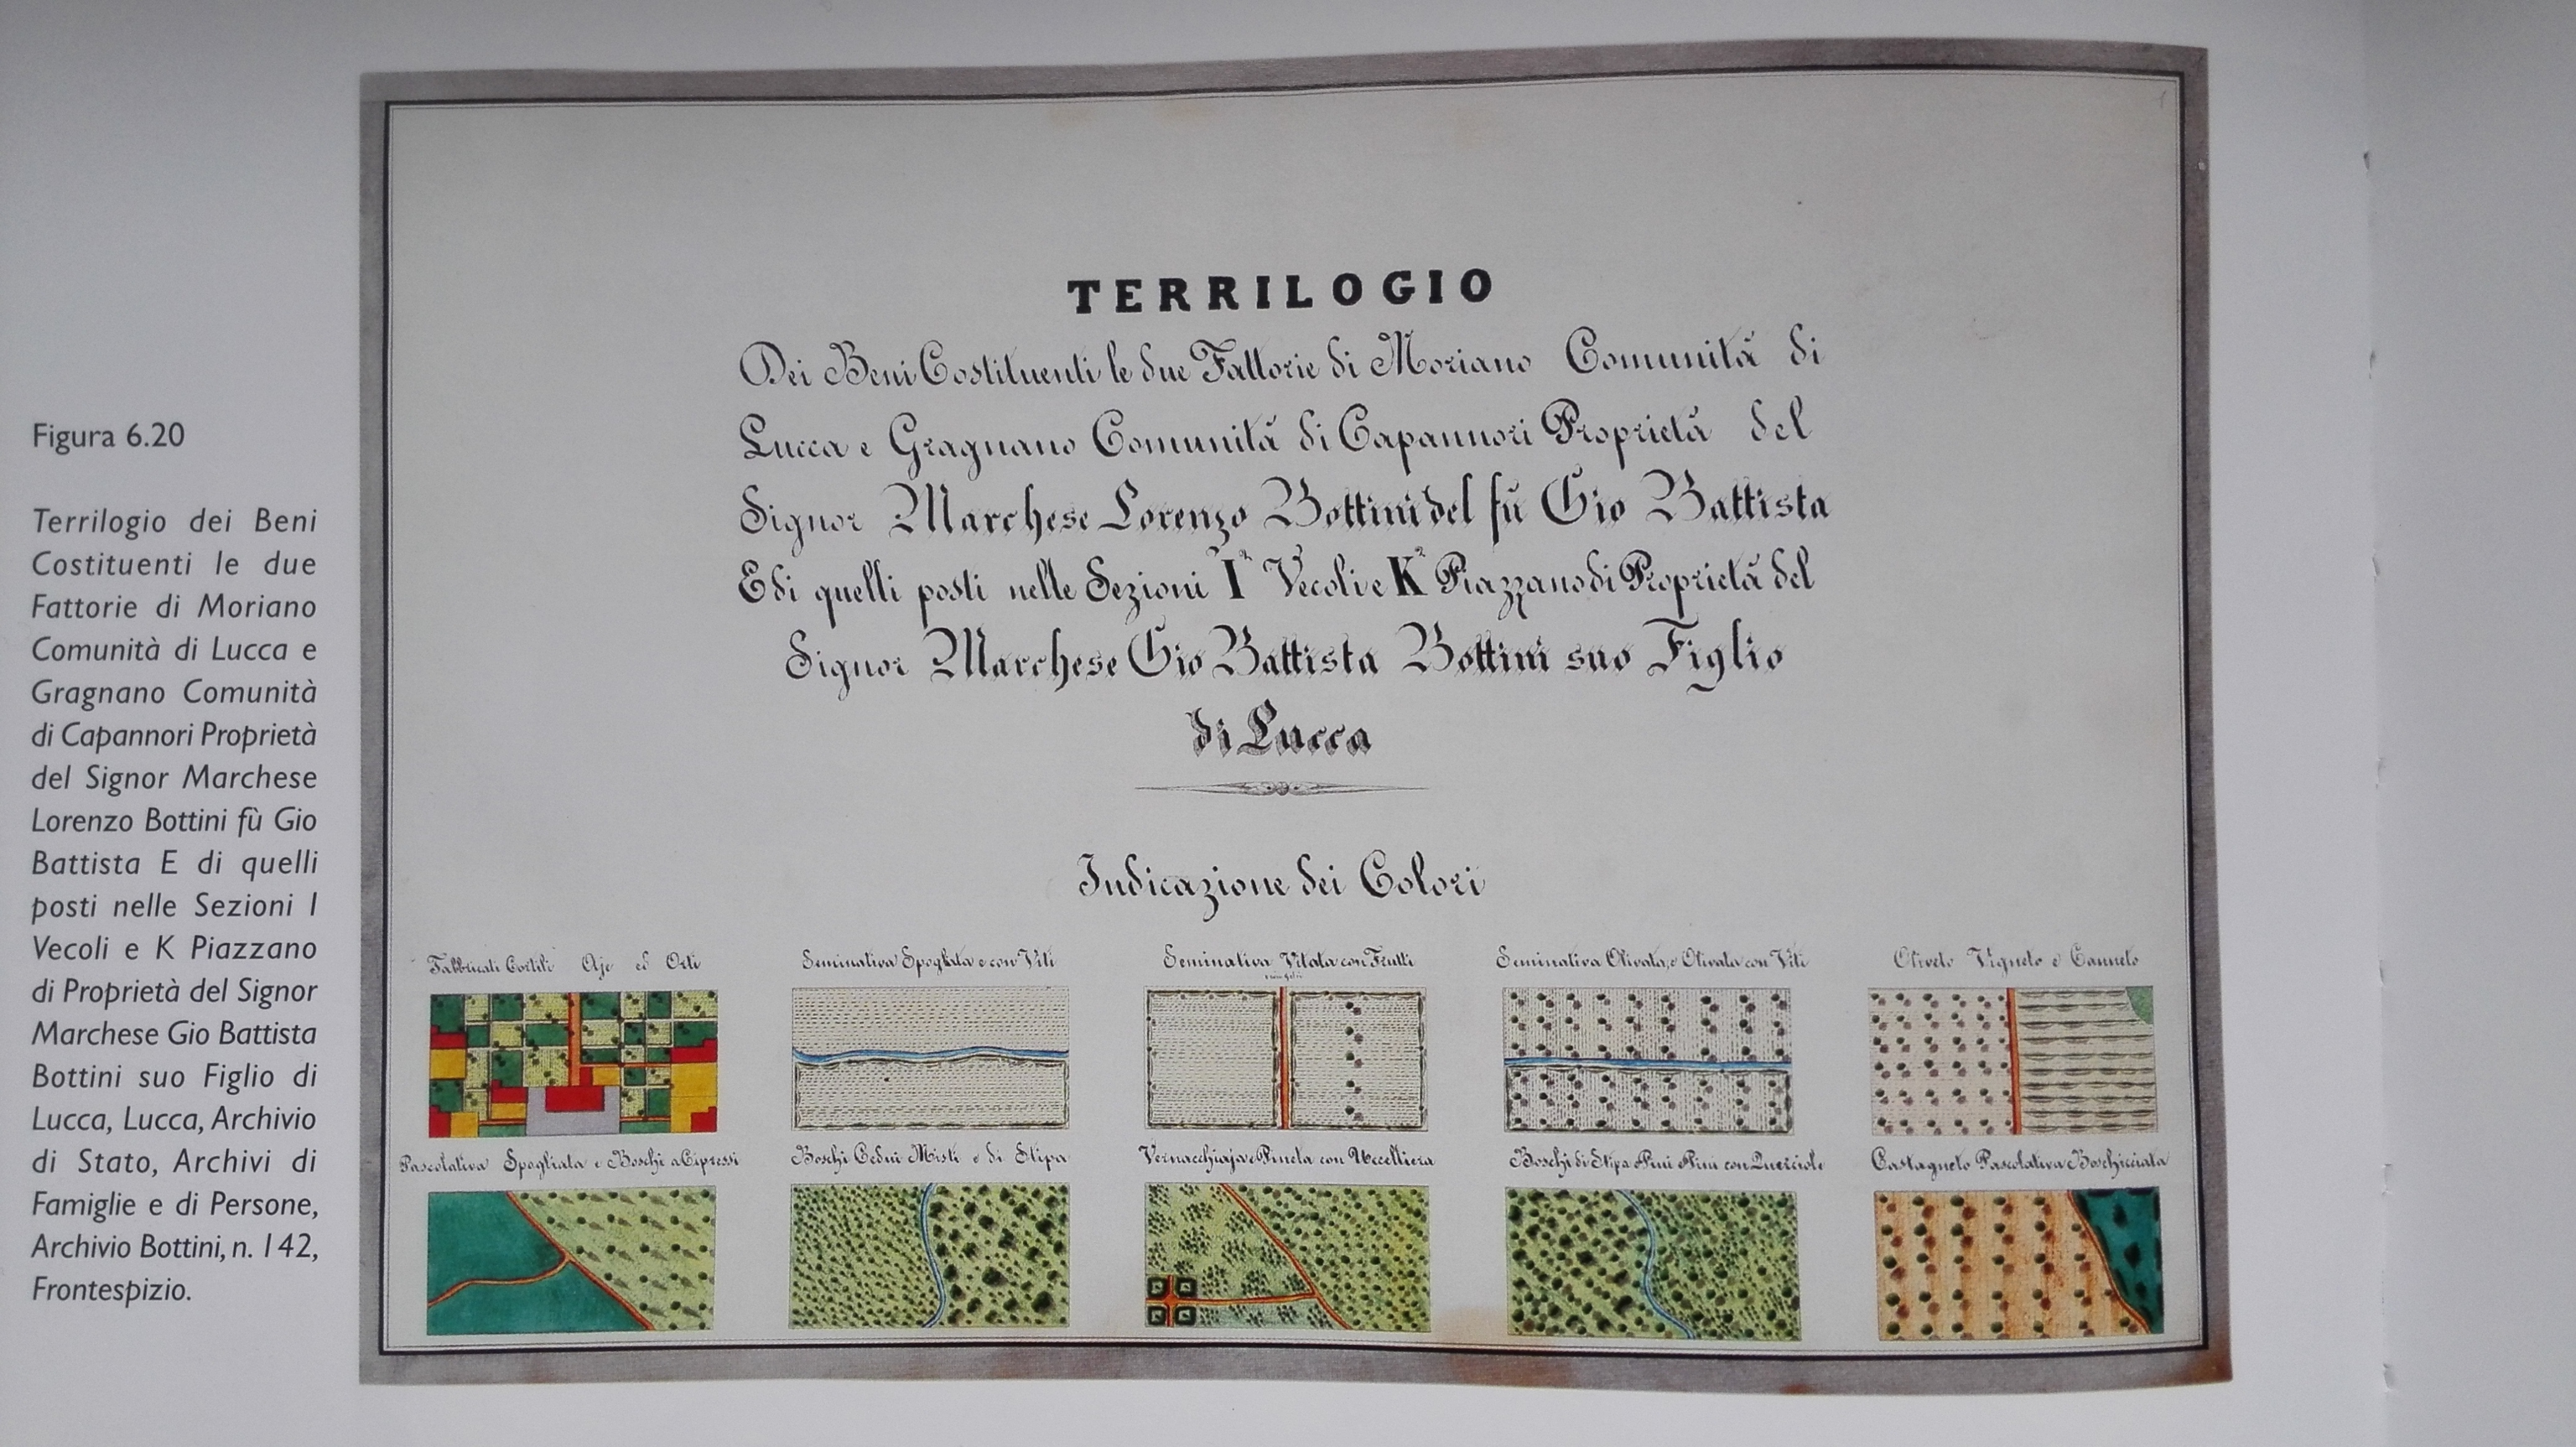 Figura 6.20
Terrilogio dei Beni
Costituenti le due
Fattorie di Moriano
Comunità di Lucca e
Gragnano Comunità
di Capannori Proprietà
del Signor Marchese
Lorenzo Bottini fù Gio
Battista E di quelli
posti nelle Sezioni I
Vecoli e K Piazzano
di Proprietà del Signor
Marchese Gio Battista
Bottini suo Figlio di
Lucca, Lucca, Archivio
di Stato, Archivi di
Famiglie e di Persone,
Archivio Bottini, n. 142,
Frontespizio.
TERRILOGIO
Dei Beni Costituenti le due Fattorie di Moriano Comunità di
Lucca e Gragnano Comunità di Capannori Proprietà del
Signor Marchese Lorenzo Bottini del fù Gio Battista
E di quelli posti nelle Sezioni I Vecoli e K Piazzano di Proprietà del
Signor Marchese Gio Battista Bottini suo Figlio
di Lucca
Indicazione dei Colori
Fabbricati Cortili Aje ed Orti
Seminativa Spogliata e con Viti
Seminativa Vitata con Frutti
Seminativa Olivata, e Olivata con Viti
Oliveto Vigneto e Canneto
Pascolativa Spogliata e Boschi a Cipressi
Boschi Cedui Misti e di Stipa
Vernacchiaja e Pineta con Uccelliera
Boschi di Stipa e Pini e Pini con Querciole
Castagneto Pascolativa e Boschicciata